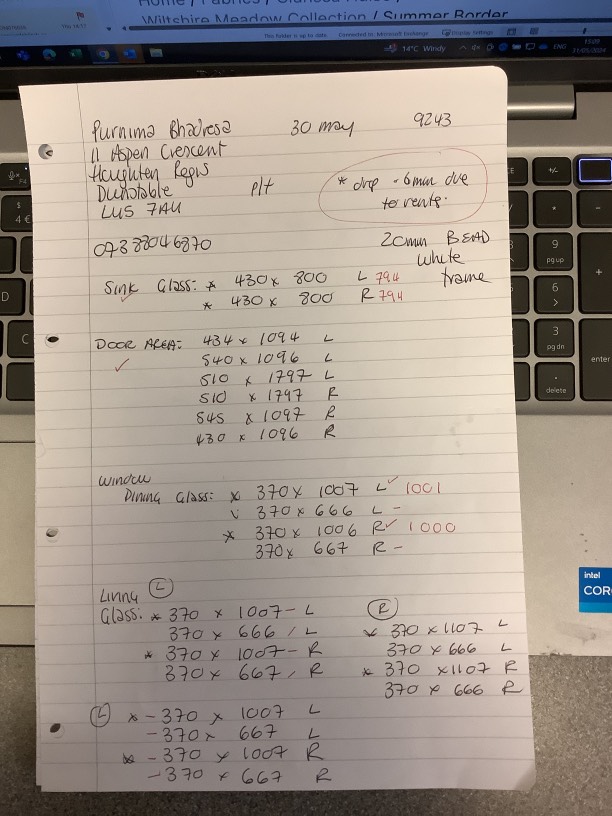 Home / Fabrics /
Wiltshire Meadow Collection / Summer Border
This folder is up to date. Connected to: Microsoft Exchange Display Settings
14°C Windy ENG 15:09 11/05/2024
Purnima Bhadresa 30 may 9243
11 Aspen Crescent
Houghten Regis
Dunstable p/t
LU5 7AU
* drop - 6mm due
to vents.
073 8804 6870
20mm BEAD
white
frame
Sink Glass: * 430 x 800 L 794
* 430 x 800 R 794
DOOR AREA: 434 x 1094 L
540 x 1096 L
510 x 1797 L
510 x 1797 R
545 x 1097 R
430 x 1096 R
Window
Dining Glass: * 370 x 1007 L 1001
370 x 666 L -
* 370 x 1006 R 1000
370 x 667 R -
Living (L)
Glass: * 370 x 1007 - L
370 x 666 / L
* 370 x 1007 - R
370 x 667 / R
(R)
* 370 x 1107 L
370 x 666 L
* 370 x 1107 R
370 x 666 R
(L) * - 370 x 1007 L
- 370 x 667 L
* - 370 x 1007 R
- 370 x 667 R
$
4 €
D
C
+/-
*
-
9
pg up
+
6
>
3
pg dn
enter
.
delete
intel
COR